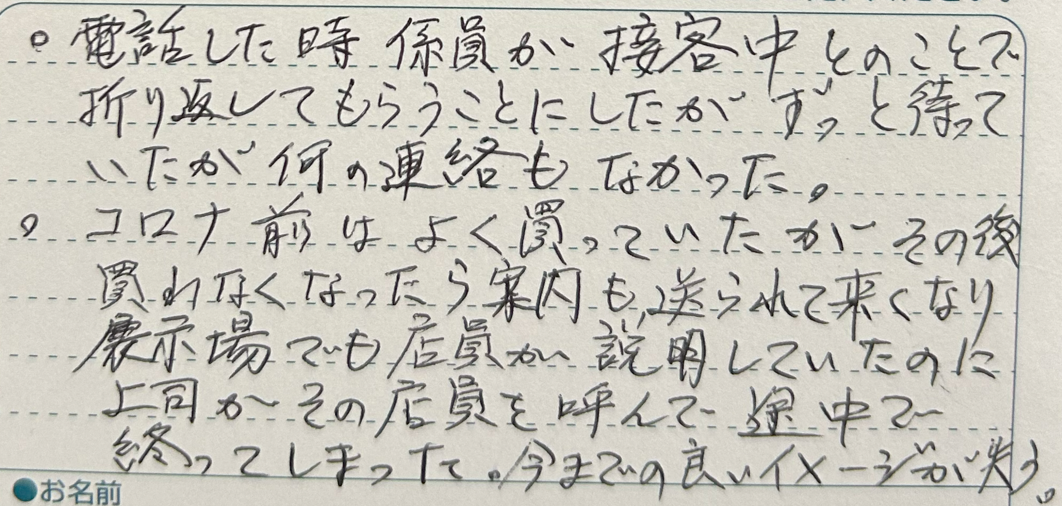 。電話した時 係員が 接客中とのことで
折り返してもらうことにしたが ずっと待って
いたが何の連絡もなかった。
。コロナ前は よく買っていたが その後
買わなくなったら案内も送られて来くなり
展示場でも店員が説明していたのに
上司がその店員を呼んで途中で
終ってしまった。今までの良いイメージが失う。
●お名前